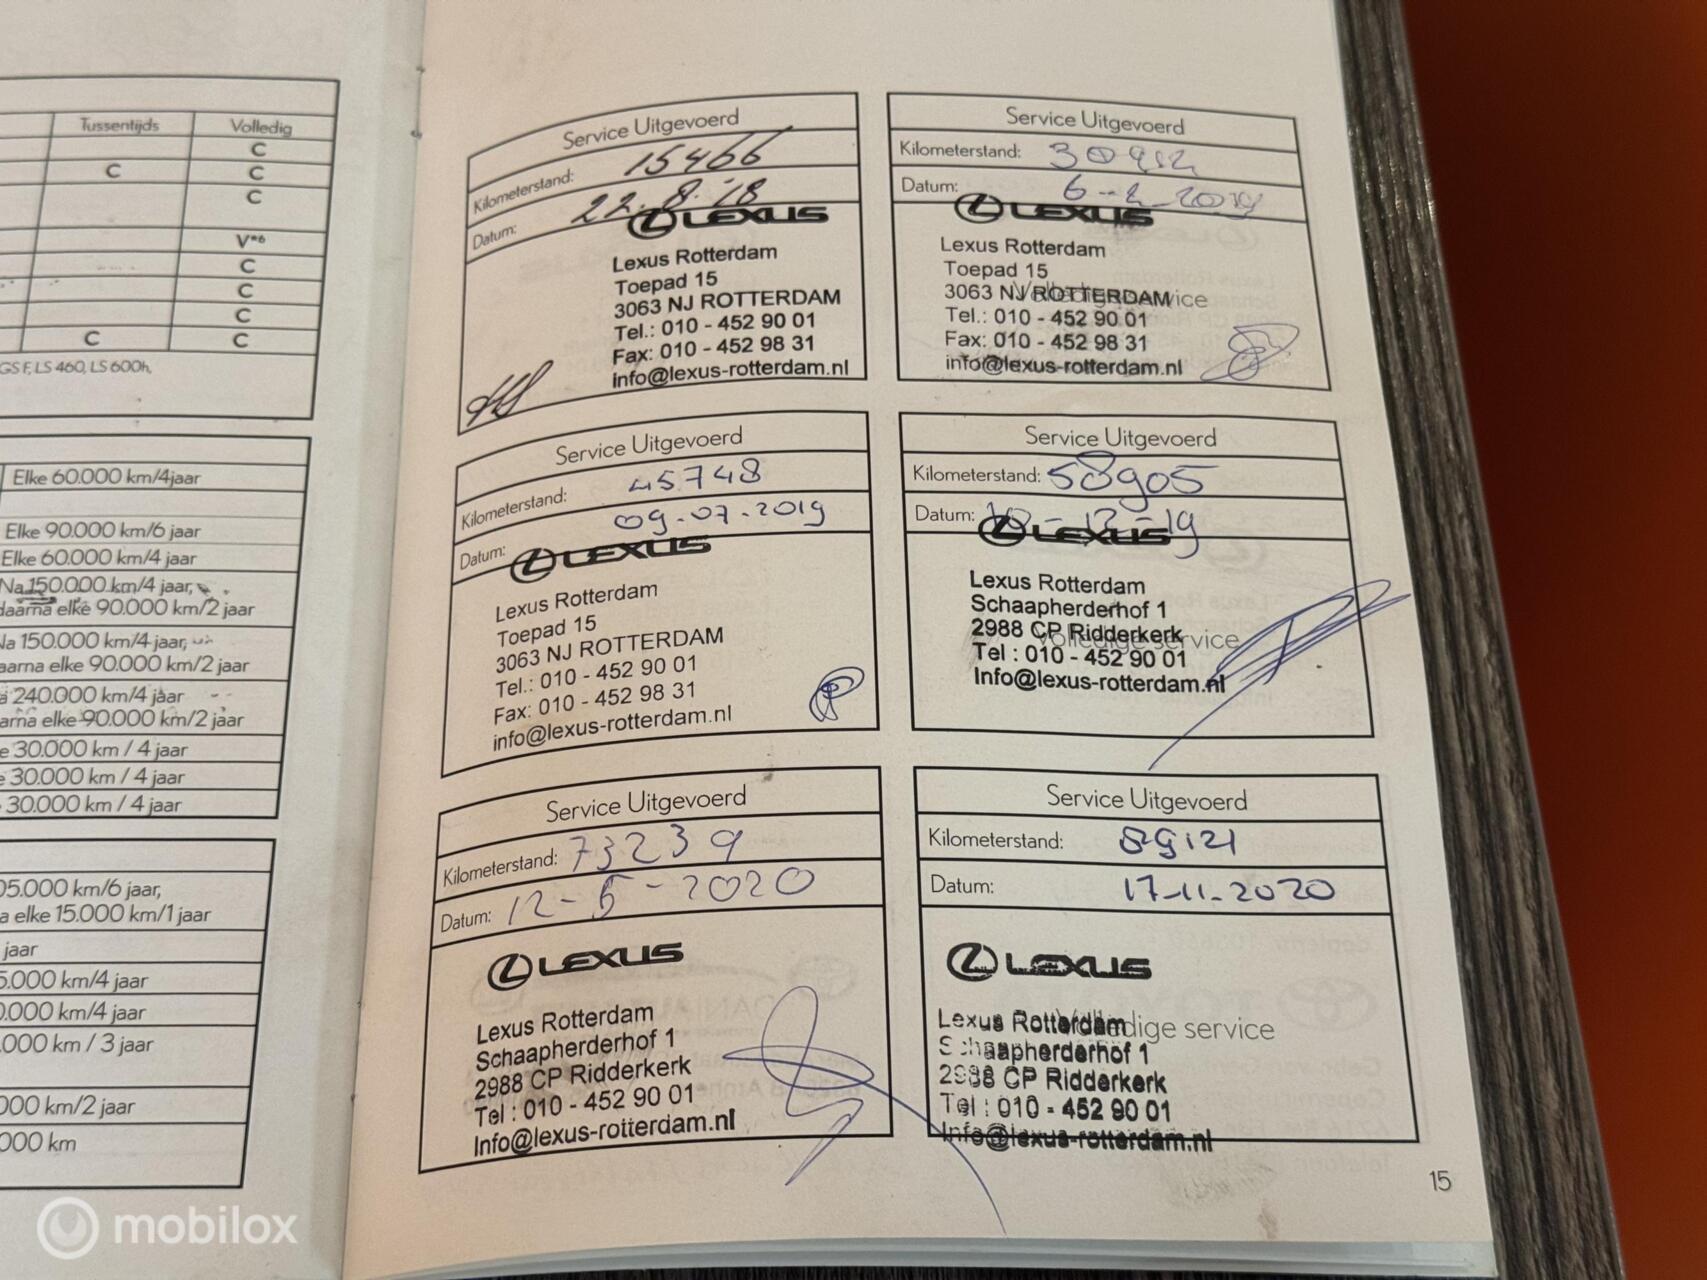 Tussentijds Volledig
C
C C
C
V*6
C
C
C
C C
GS F, LS 460, LS 600h,
Elke 60.000 km/4jaar
Elke 90.000 km/6 jaar
Elke 60.000 km/4 jaar
Na 150.000 km/4 jaar,
daarna elke 90.000 km/2 jaar
Na 150.000 km/4 jaar,
aarna elke 90.000 km/2 jaar
240.000 km/4 jaar
arna elke 90.000 km/2 jaar
e 30.000 km / 4 jaar
e 30.000 km / 4 jaar
30.000 km / 4 jaar
05.000 km/6 jaar,
a elke 15.000 km/1 jaar
jaar
5.000 km/4 jaar
0.000 km/4 jaar
.000 km / 3 jaar
000 km/2 jaar
000 km
Service Uitgevoerd
Kilometerstand: 15466
Datum: 22.8.'18
LEXUS
Lexus Rotterdam
Toepad 15
3063 NJ ROTTERDAM
Tel.: 010 - 452 90 01
Fax: 010 - 452 98 31
info@lexus-rotterdam.nl
Service Uitgevoerd
Kilometerstand:
Datum: 6-2-2019
LEXUS
Lexus Rotterdam
Toepad 15
3063 NJ ROTTERDAM
Volledige service
Tel.: 010 - 452 90 01
Fax: 010 - 452 98 31
info@lexus-rotterdam.nl
Service Uitgevoerd
Kilometerstand: 45748
Datum: 09-07-2019
LEXUS
Lexus Rotterdam
Toepad 15
3063 NJ ROTTERDAM
Tel.: 010 - 452 90 01
Fax: 010 - 452 98 31
info@lexus-rotterdam.nl
Service Uitgevoerd
Kilometerstand: 58905
Datum: 10-12-19
LEXUS
Lexus Rotterdam
Schaapherderhof 1
2988 CP Ridderkerk
Volledige service
Tel : 010 - 452 90 01
Info@lexus-rotterdam.nl
Service Uitgevoerd
Kilometerstand: 73239
Datum: 12-5-2020
LEXUS
Lexus Rotterdam
Schaapherderhof 1
2988 CP Ridderkerk
Tel : 010 - 452 90 01
Info@lexus-rotterdam.nl
Service Uitgevoerd
Kilometerstand: 89121
Datum: 17-11-2020
LEXUS
Lexus Rotterdam
Volledige service
Schaapherderhof 1
2988 CP Ridderkerk
Tel : 010 - 452 90 01
Info@lexus-rotterdam.nl
15
mobilox